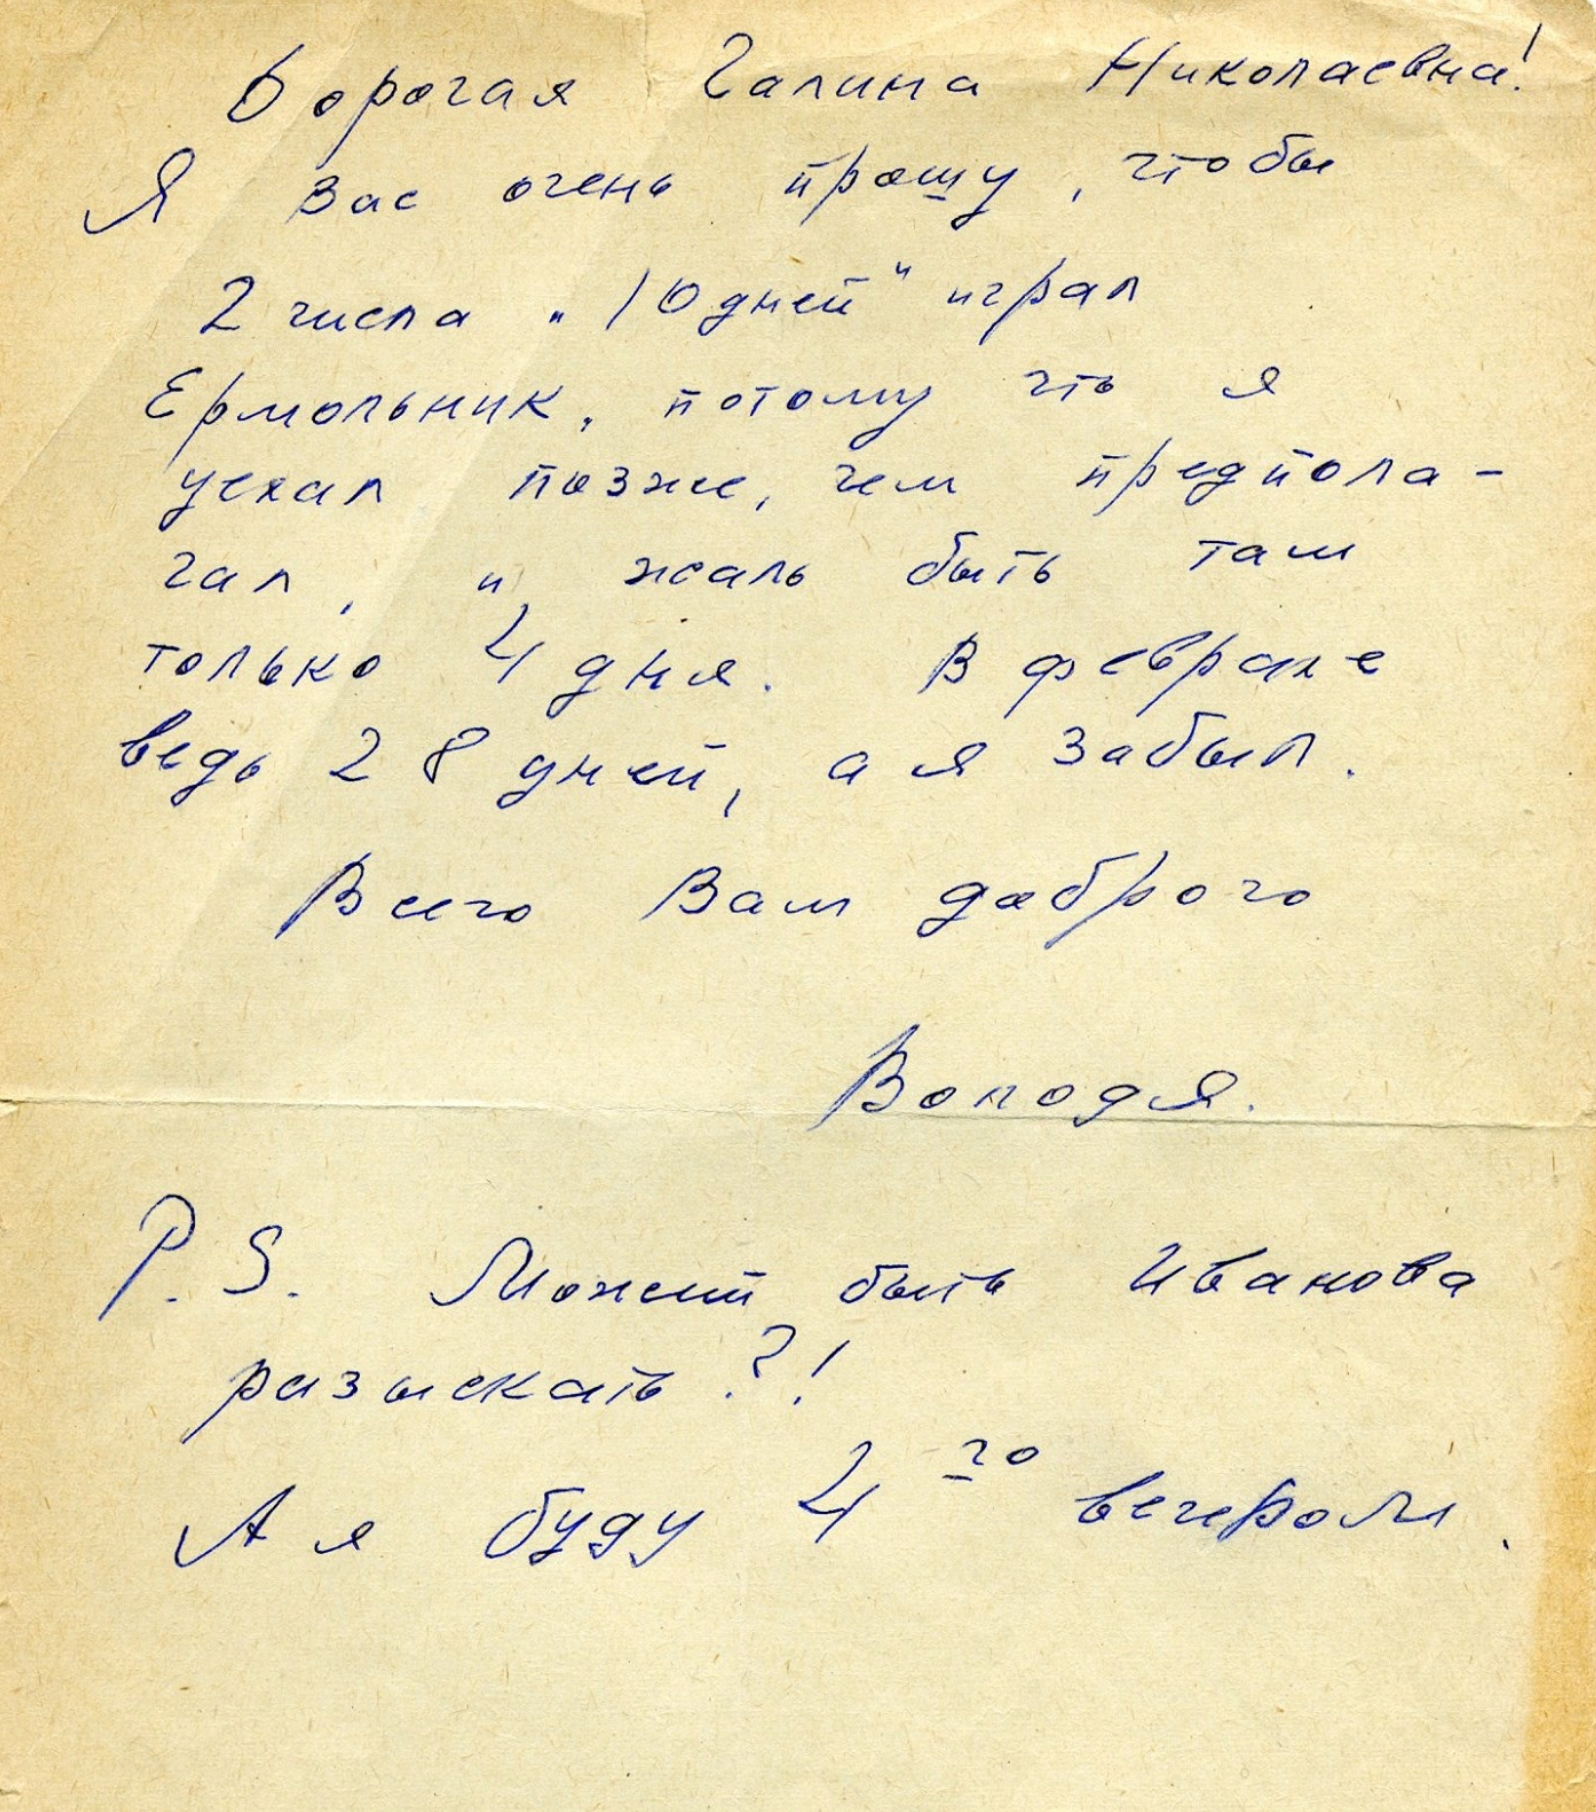 Дорогая Галина Николаевна!
Я Вас очень прошу, чтобы
2 числа „10 дней" играл
Ермольник, потому что я
уехал позже, чем предпола-
гал, и жаль быть там
только 4 дня. В феврале
ведь 28 дней, а я забыл.
Всего Вам доброго
Володя.
P.S. Может быть Иванова
разыскать?!
А я буду 4го вечером.